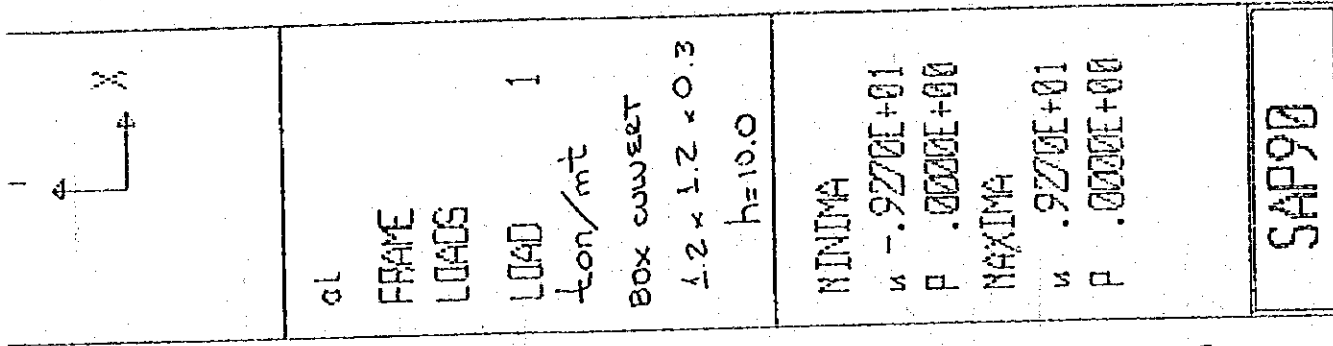 X
al
FRAME
LOADS
LOAD 1
ton/mt
BOX CULVERT
1.2 x 1.2 x 0.3
h=10.0
MINIMA
s -.9270E+01
p .0000E+00
MAXIMA
s .9270E+01
p .0000E+00
SAP90